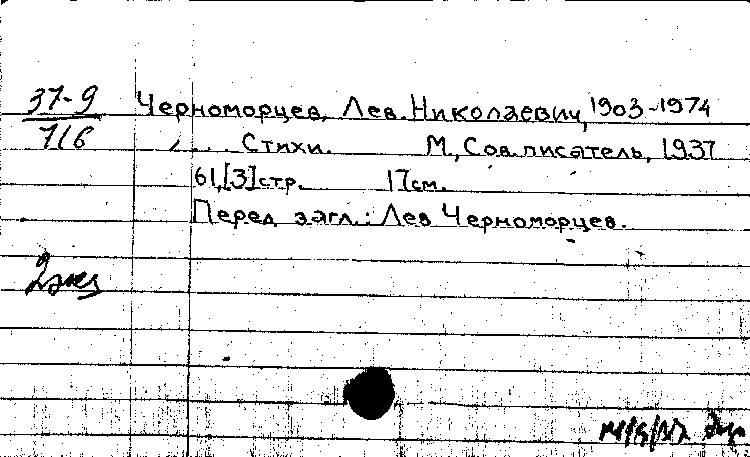 37-9 Черноморцев, Лев Николаевич, 1903-1974
716 Стихи. М., Сов. писатель, 1937
61,[3] стр. 17 см.
Перед загл.: Лев Черноморцев.
2 экз